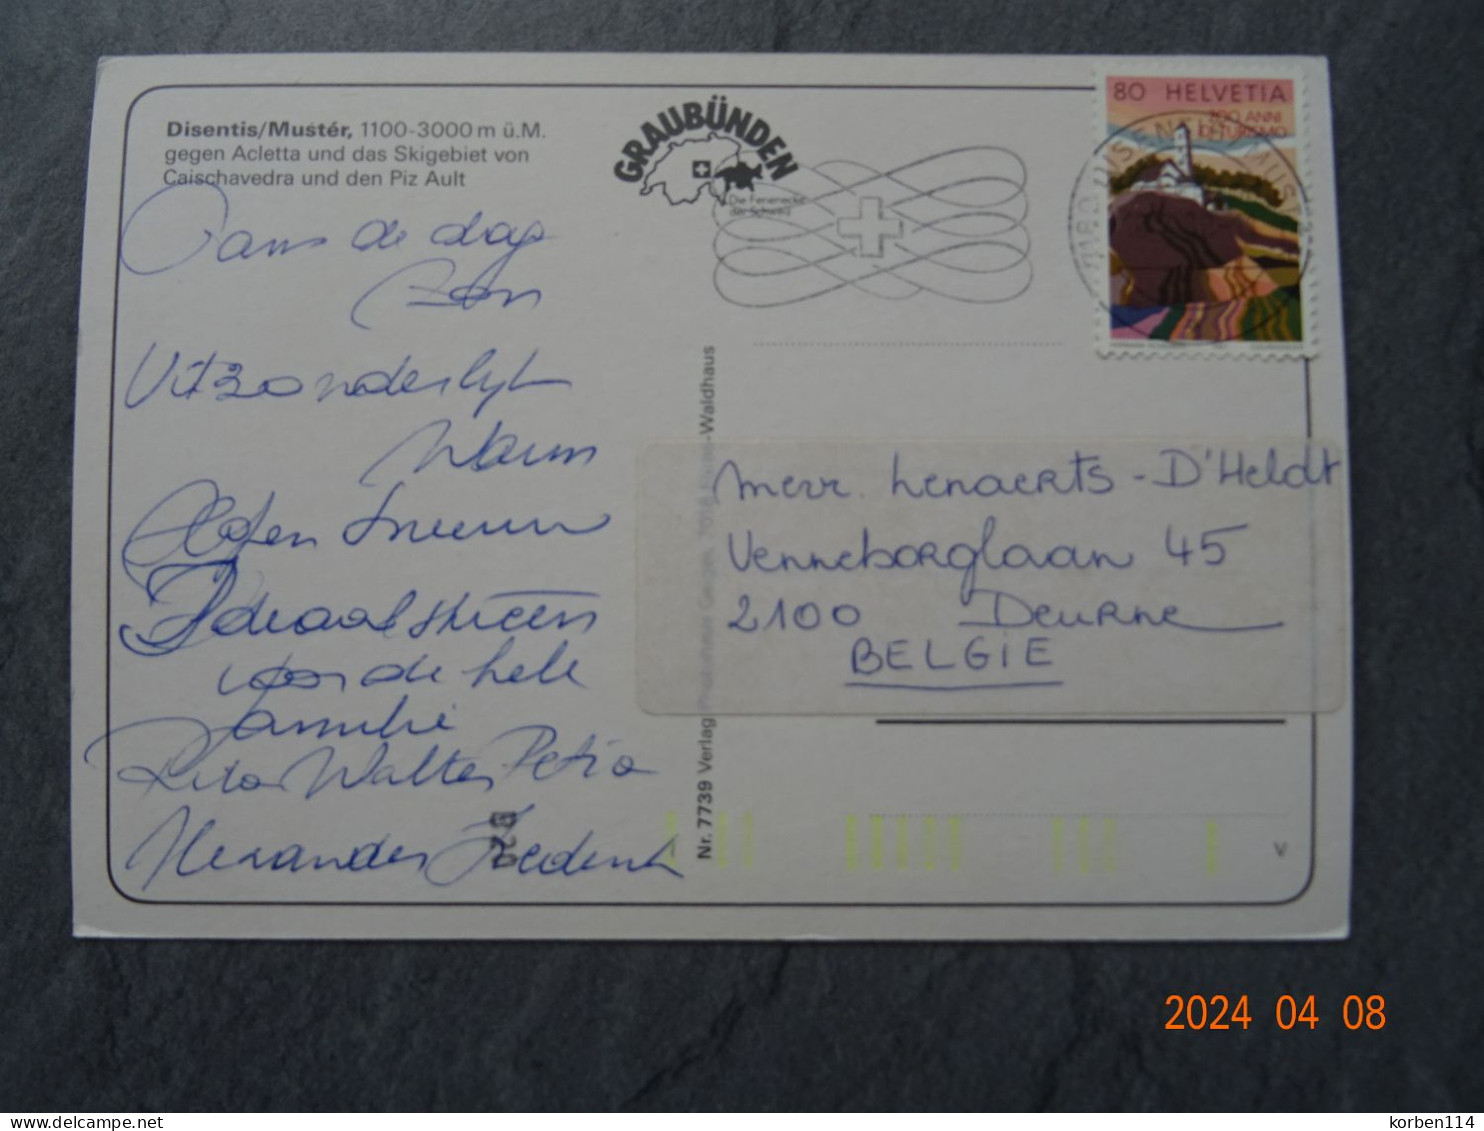 Disentis/Mustér, 1100-3000 m ü.M.
gegen Acletta und das Skigebiet von
Caischavedra und den Piz Ault
GRAUBÜNDEN
Die Ferienecke
der Schweiz
80 HELVETIA
200 ANNI
DI TURISMO
de dag
zon
Uitzonderlijk
warm
Afen sneeuw
Ideaal skiën
voor de hele
familie
Rita Walter Petra
Alexander Frederik
Mevr. Lenaerts - D'Heldt
Venneborglaan 45
2100 Deurne
BELGIE
Nr. 7739 Verlag Waldhaus
V
2024 04 08
korben114